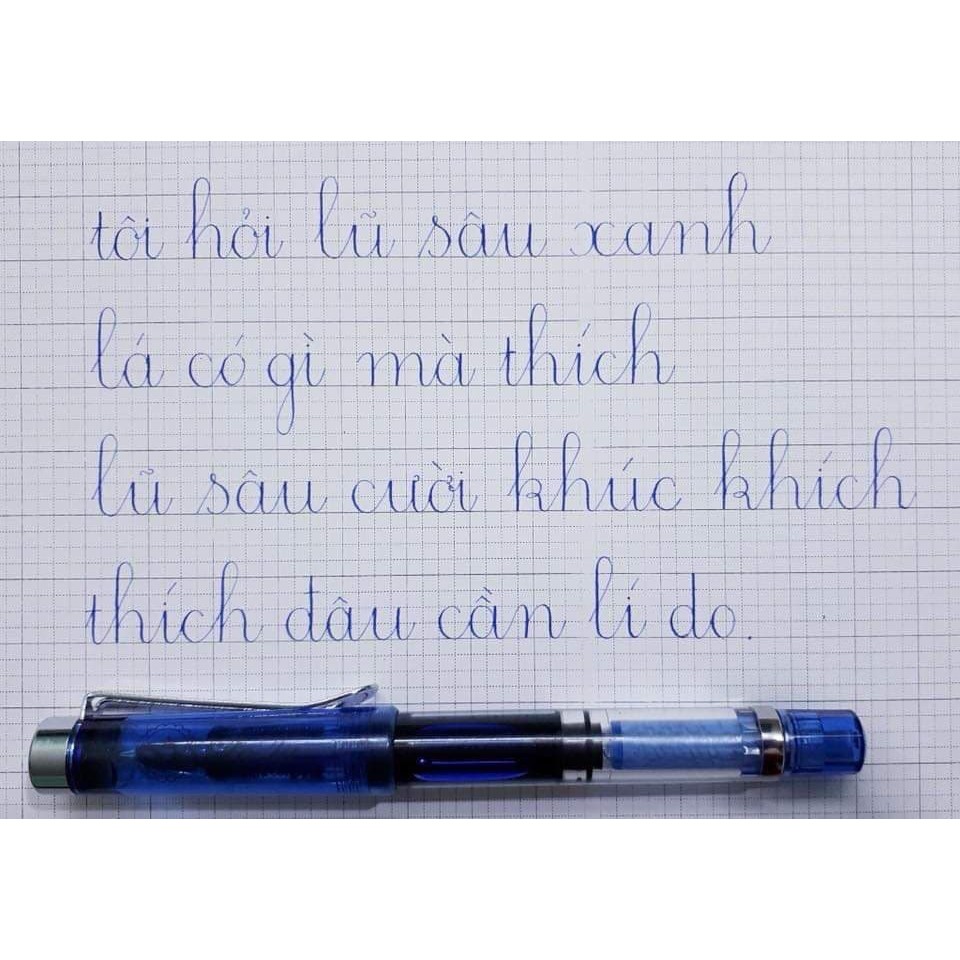 tôi hỏi lũ sâu xanh
lá có gì mà thích
lũ sâu cười khúc khích
thích đâu cần lí do.